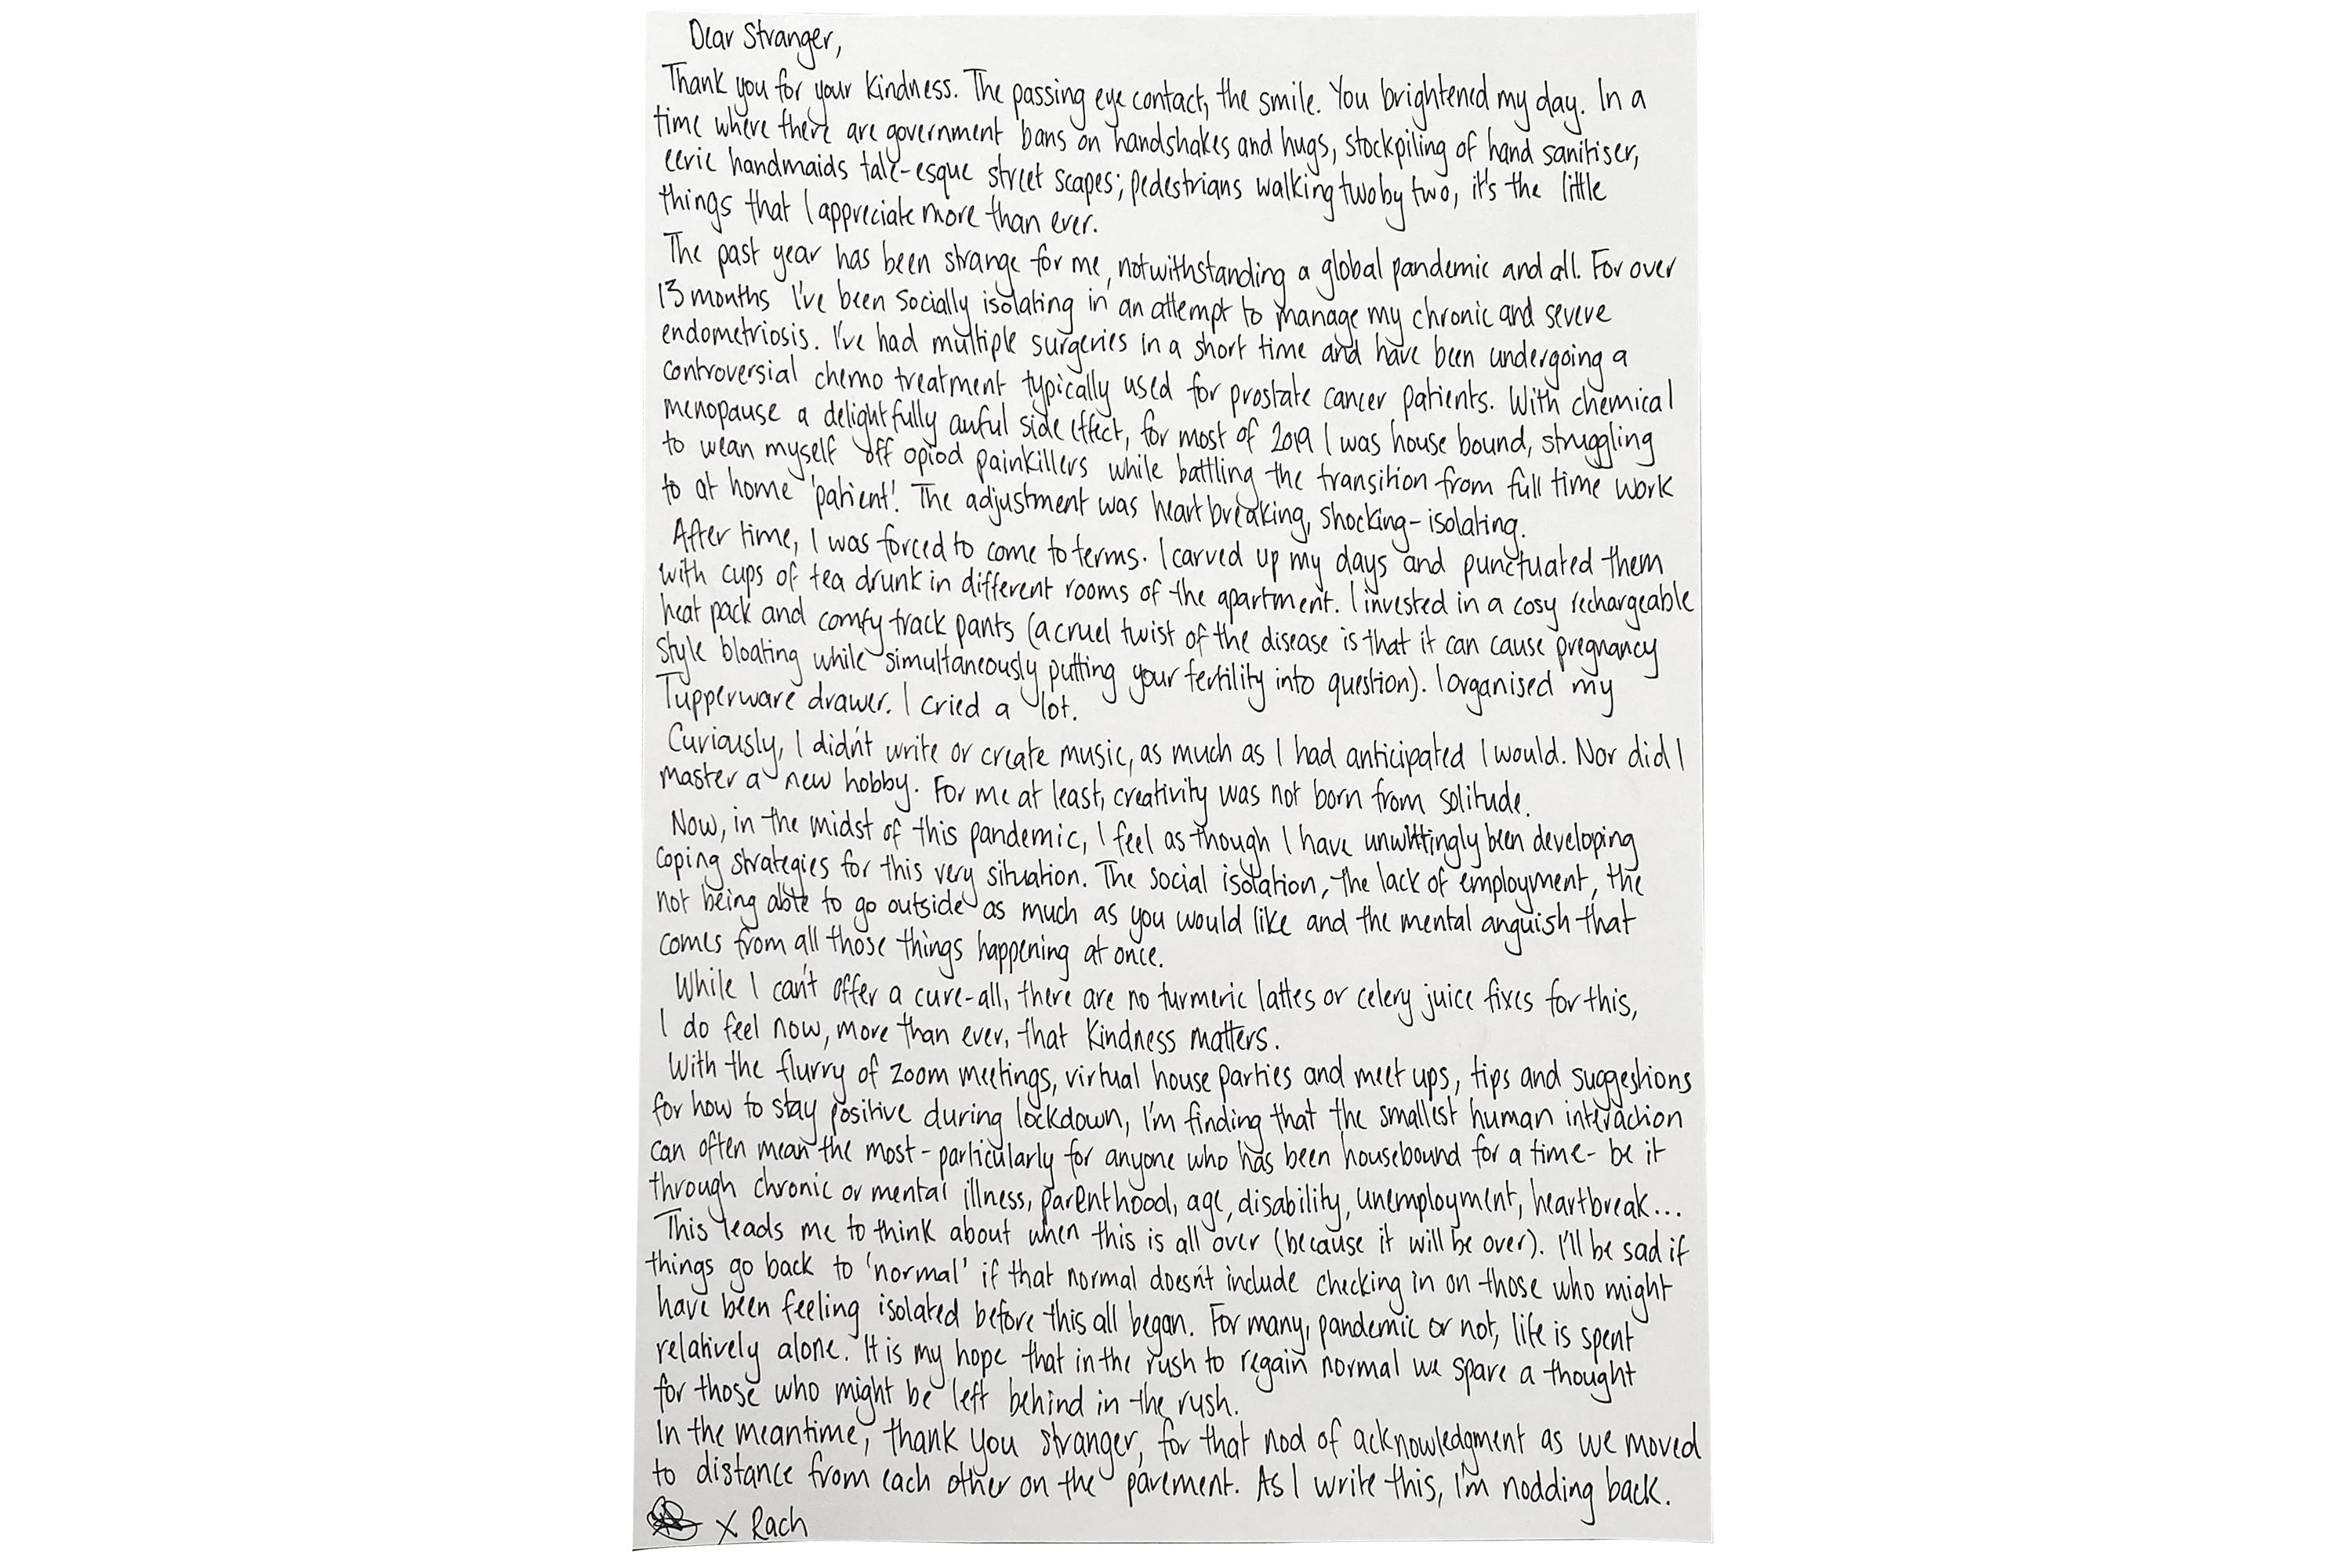 Dear Stranger,
Thank you for your kindness. The passing eye contact, the smile. You brightened my day. In a
time where there are government bans on handshakes and hugs, stockpiling of hand sanitiser,
eerie handmaids tale-esque street scapes; pedestrians walking two by two, it's the little
things that I appreciate more than ever.
The past year has been strange for me, notwithstanding a global pandemic and all. For over
13 months I've been socially isolating in an attempt to manage my chronic and severe
endometriosis. I've had multiple surgeries in a short time and have been undergoing a
controversial chemo treatment typically used for prostate cancer patients. With chemical
menopause a delightfully awful side effect, for most of 2019 I was house bound, struggling
to wean myself off opiod painkillers while battling the transition from full time work
to at home 'patient'. The adjustment was heart breaking, shocking - isolating.
After time, I was forced to come to terms. I carved up my days and punctuated them
with cups of tea drunk in different rooms of the apartment. I invested in a cosy rechargeable
heat pack and comfy track pants (a cruel twist of the disease is that it can cause pregnancy
style bloating while simultaneously putting your fertility into question). I organised my
Tupperware drawer. I cried a lot.
Curiously, I didn't write or create music, as much as I had anticipated I would. Nor did I
master a new hobby. For me at least, creativity was not born from solitude.
Now, in the midst of this pandemic, I feel as though I have unwittingly been developing
coping strategies for this very situation. The social isolation, the lack of employment, the
not being able to go outside as much as you would like and the mental anguish that
comes from all those things happening at once.
While I can't offer a cure-all, there are no turmeric lattes or celery juice fixes for this,
I do feel now, more than ever, that kindness matters.
With the flurry of zoom meetings, virtual house parties and meet ups, tips and suggestions
for how to stay positive during lockdown, I'm finding that the smallest human interaction
can often mean the most - particularly for anyone who has been housebound for a time - be it
through chronic or mental illness, parenthood, age, disability, unemployment, heartbreak...
This leads me to think about when this is all over (because it will be over). I'll be sad if
things go back to 'normal' if that normal doesn't include checking in on those who might
have been feeling isolated before this all began. For many, pandemic or not, life is spent
relatively alone. It is my hope that in the rush to regain normal we spare a thought
for those who might be left behind in the rush.
In the meantime, thank you stranger, for that nod of acknowledgment as we moved
to distance from each other on the pavement. As I write this, I'm nodding back.
X Rach